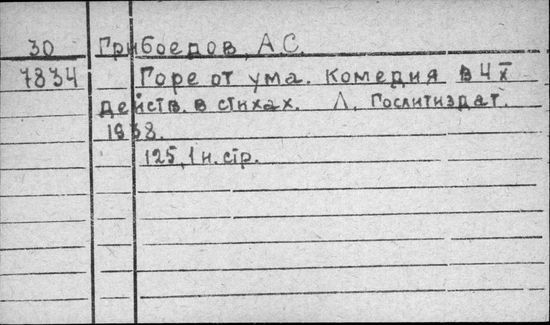 30 Грибоедов, А.С.
7834 Горе от ума. Комедия в 4х
действ. в стихах. Л. Гослитиздат.
1938.
125, 1 н. стр.